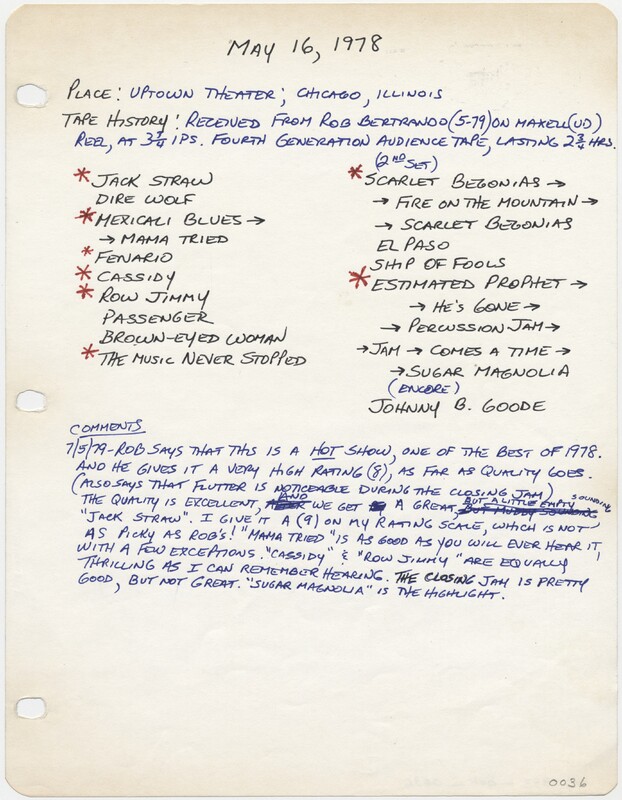 MAY 16, 1978
PLACE: UPTOWN THEATER; CHICAGO, ILLINOIS
TAPE HISTORY: RECEIVED FROM ROB BERTRANDO (5-79) ON MAXELL (UD)
REEL, AT 3¾ IPS. FOURTH GENERATION AUDIENCE TAPE, LASTING 2¾ HRS.
* JACK STRAW
DIRE WOLF
* MEXICALI BLUES →
→ MAMA TRIED
* FENARIO
* CASSIDY
* ROW JIMMY
PASSENGER
BROWN-EYED WOMAN
* THE MUSIC NEVER STOPPED
(2ND SET)
* SCARLET BEGONIAS →
→ FIRE ON THE MOUNTAIN →
→ SCARLET BEGONIAS
EL PASO
SHIP OF FOOLS
* ESTIMATED PROPHET →
→ HE'S GONE →
→ PERCUSSION JAM →
→ JAM → COMES A TIME →
→ SUGAR MAGNOLIA
(ENCORE)
JOHNNY B. GOODE
COMMENTS
7/5/79 - ROB SAYS THAT THIS IS A HOT SHOW, ONE OF THE BEST OF 1978.
AND HE GIVES IT A VERY HIGH RATING (8), AS FAR AS QUALITY GOES.
(ALSO SAYS THAT FLUTTER IS NOTICEABLE DURING THE CLOSING JAM)
THE QUALITY IS EXCELLENT, AND WE GET A GREAT, BUT A LITTLE EMPTY SOUNDING
"JACK STRAW". I GIVE IT A (9) ON MY RATING SCALE, WHICH IS NOT
AS PICKY AS ROB'S! "MAMA TRIED" IS AS GOOD AS YOU WILL EVER HEAR IT,
WITH A FEW EXCEPTIONS. "CASSIDY" & "ROW JIMMY" ARE EQUALLY
THRILLING AS I CAN REMEMBER HEARING. THE CLOSING JAM IS PRETTY
GOOD, BUT NOT GREAT. "SUGAR MAGNOLIA" IS THE HIGHLIGHT.
0036